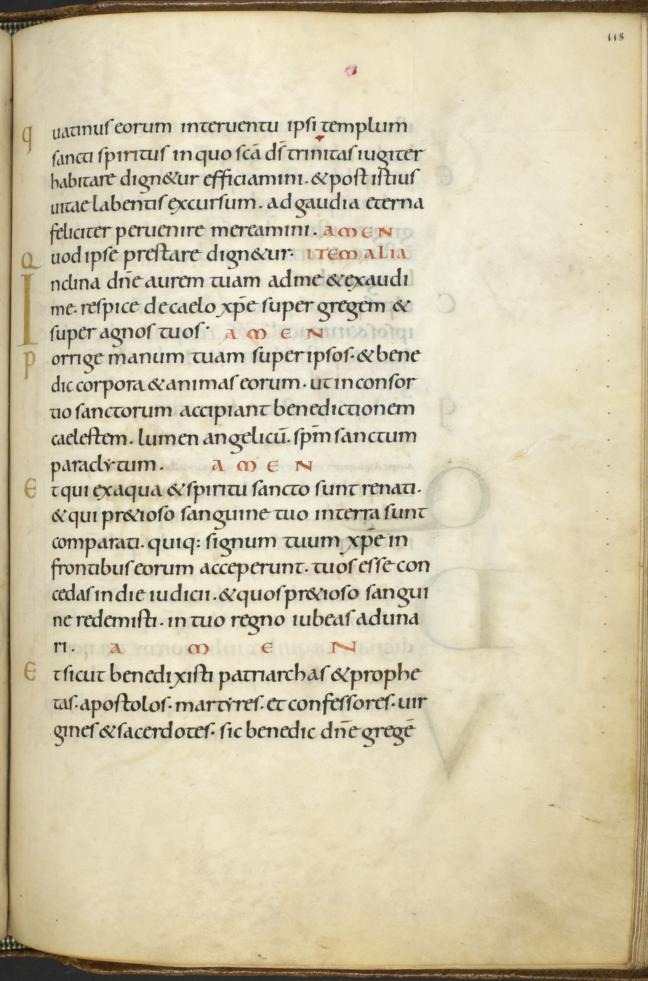 118
quatinus eorum interuentu ipsi templum
sancti spiritus in quo scā ds̄ trinitas iugiter
habitare dign&ur efficiamini. & post istius
uitae labentis excursum. ad gaudia eterna
feliciter peruenire mereamini. AMEN
Quod ipse prestare dign&ur. ITEM ALIA
Inclina dn̄e aurem tuam ad me & exaudi
me. respice de caelo xp̄e super gregem &
super agnos tuos. AMEN
porrige manum tuam super ipsos. & bene
dic corpora & animas eorum. ut in consor
tio sanctorum accipiant benedictionem
caelestem. lumen angelicū. sp̄m sanctum
paraclytum. AMEN
Et qui ex aqua & spiritu sancto sunt renati.
& qui pr&ioso sanguine tuo in terra sunt
comparati. quiq: signum tuum xp̄e in
frontibus eorum acceperunt. tuos esse con
cedas in die iudicii. & quos pr&ioso sangui
ne redemisti. in tuo regno iubeas aduna
ri. AMEN
Et sicut benedixisti patriarchas & prophe
tas. apostolos. martyres. et confessores. uir
gines & sacerdotes. sic benedic dn̄e gregē